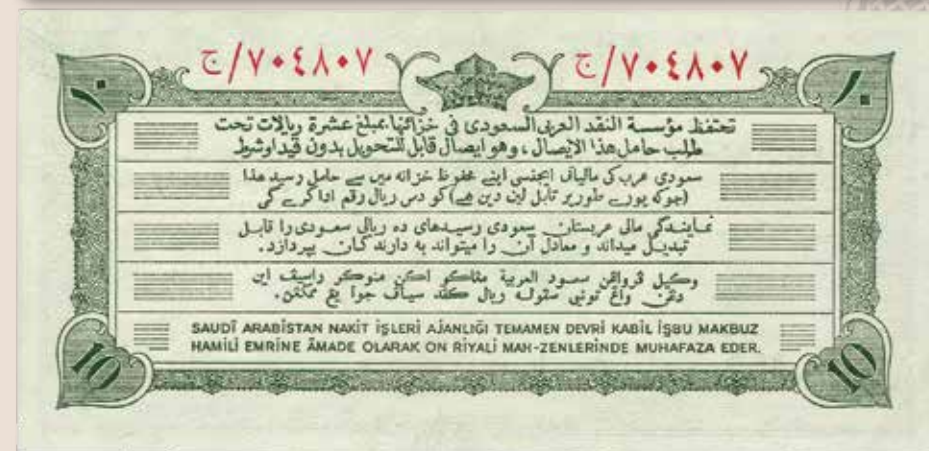 ج/٧٠٤٨٠٧ ج/٧٠٤٨٠٧
١٠ ١٠
تحتفظ مؤسسة النقد العربى السعودى فى خزائنها بمبلغ عشرة ريالات تحت
طلب حامل هذا الايصال ، وهو ايصال قابل للتحويل بدون قيد اوشرط
سعودی عرب کی مالیاتی ایجنسی اپنے محفوظ خزانہ میں سے حامل رسید هذا
(جوکہ پورے طورپر قابل لین دین ھے) کو دس ریال رقم ادا کرے گی
نمایندگی مالی عربستان سعودی رسیدهای ده ریالی سعودی را قابل
تبدیل میداند و معادل آن را میتواند به دارندگان بپردازد.
وكيل سعود العربية اين
ريال يڠ
SAUDİ ARABİSTAN NAKİT İŞLERİ AJANLIĞI TEMAMEN DEVRİ KABİL İŞBU MAKBUZ
HAMİLİ EMRİNE ÂMADE OLARAK ON RİYALİ MAH-ZENLERİNDE MUHAFAZA EDER.
10 10